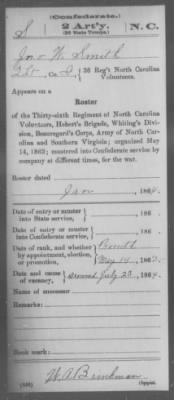 (Confederate.)
S 2 Art'y. N. C.
(36 State Troops.)
Jno W. Smith
, Co. , 36 Reg't North Carolina
Volunteers.
Appears on a
Roster
of the Thirty-sixth Regiment of North Carolina
Volunteers, Hebert's Brigade, Whiting's Divi-
sion, Beauregard's Corps, Army of North Caro-
lina and Southern Virginia; organized May
14, 1862; mustered into Confederate service by
company at different times, for the war.
Roster dated
Jan , 1864.
Date of entry or muster
into State service, , 186 .
Date of entry or muster
into Confederate service, , 186 .
Date of rank, and whether
by appointment, election,
or promotion, May 14, 186 .
Date and cause
of vacancy, July 23, 186 .
Name of successor
Remarks:
Book mark:
W. A. Brinkman
Copyist.